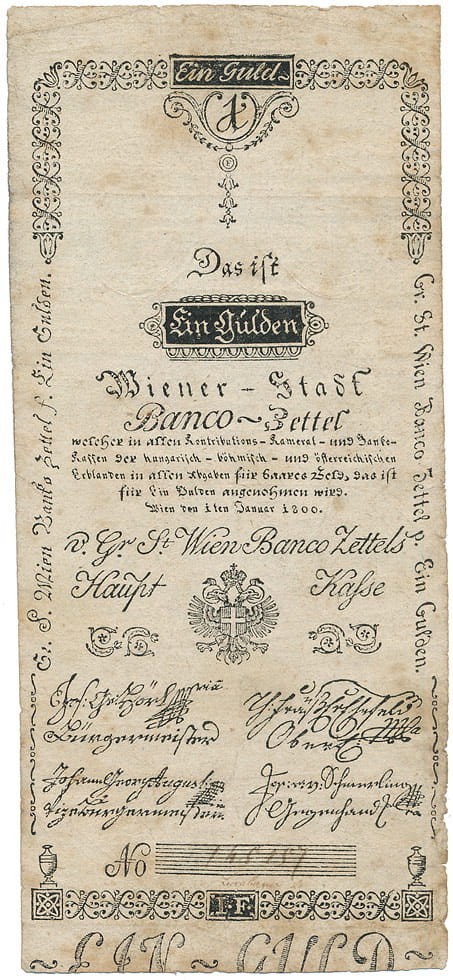 Ein Guld~
1
E
Das ist
Ein Gulden
Wiener - Stadt
Banco~Zettel
welcher in allen Kontributions- Kameral- und Banko-
Kassen der hungarisch- böhmisch- und österreichischen
Erblanden in allen Abgaben für baares Geld, das ist
für Ein Gulden angenohmen wird.
Wien den 1ten Januar 1800.
v. Gr St. Wien Banco Zettels
Haupt Kasse
Gr. S. Wien Banko Zettel f. Ein Gulden.
Gr. St. Wien Banco Zettel p. Ein Gulden.
Bürgermeister
Ober
Johann Georg Augusti
Vizebürgermeister
Schmerling
Gegenhand
No
1F
EIN - GULD -